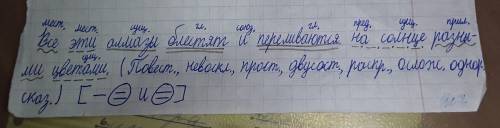 мест. мест. сущ. гл. союз. гл. пред. сущ. прил.
Все эти алмазы блестят и переливаются на солнце разны-
сущ.
ми цветами. (Повест., невоскл., прост., двусост., распр., ослож. однор.
сказ.) [ – = и = ]